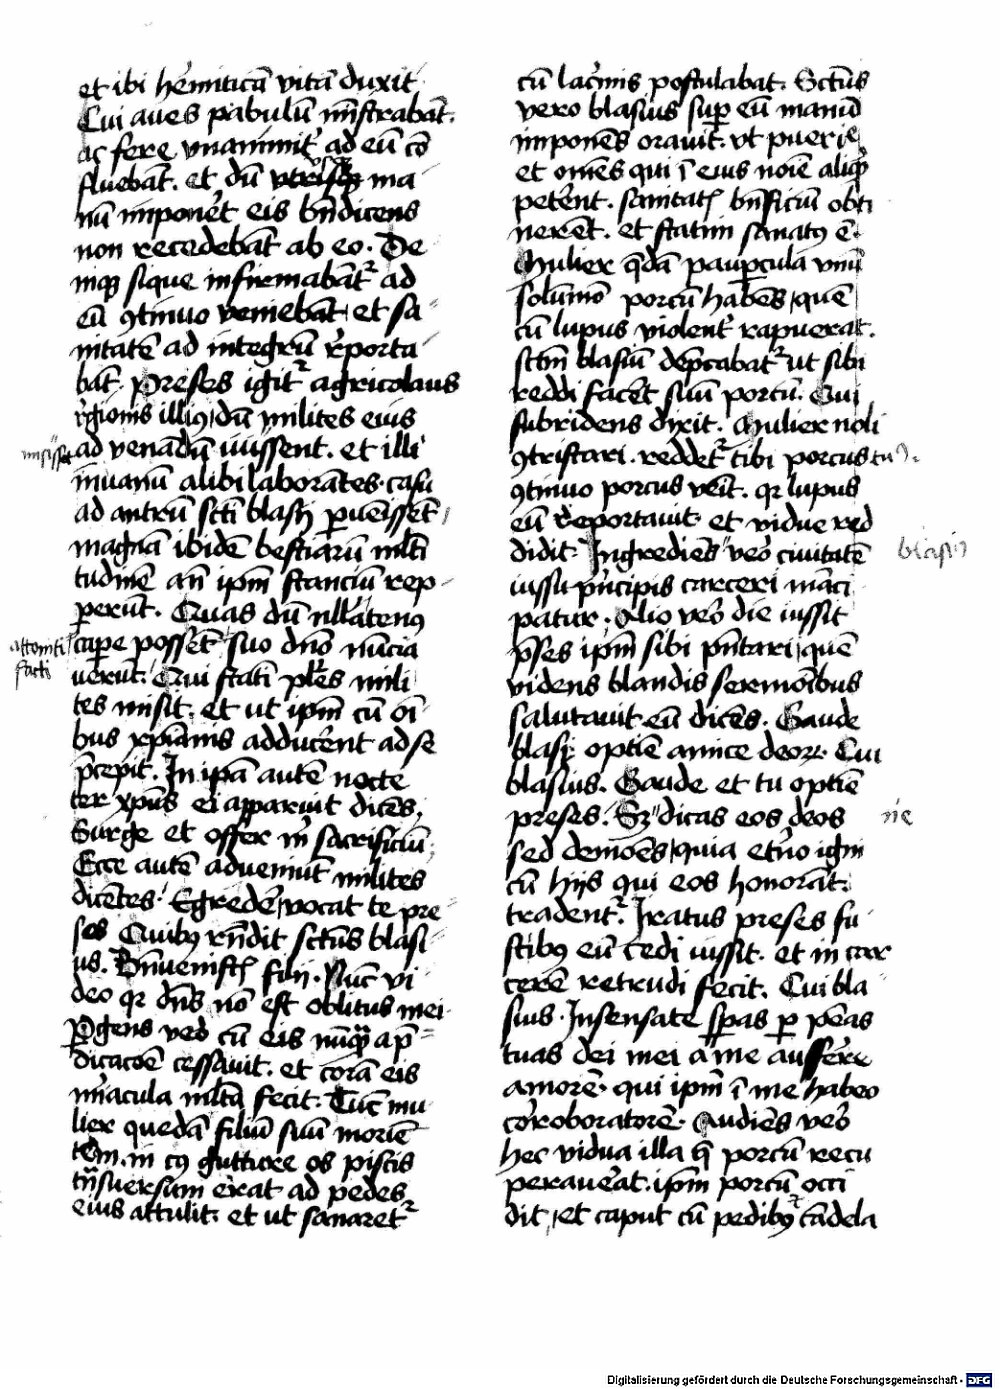 et ibi hērmiticā vitā duxit
Cui aues pabulū mīstrabāt.
ac fere vnanimit' ad eū cō
fluebāt. et dū ma
nū imponēt eis bn̄dicens
non recedebāt ab eo. De
niqꝫ sique infirmabāt' ad
eū ꝯtinuo veniebāt, et sa
nitatē ad integrū r̄porta
bāt. Preses igit' agricolaus
r̄gionis illiꝰ, dū milites eius
misisset
ad venādū iuissent. et illi
inuanū alibi laborātes. casu
ad antrū scti blasij ꝑueissēt
magnā ibidē bestiarū mlti
tudinē an̄ ipm̄ stanciū rep
perūt. Quas dū nllatenꝰ
attoniti facti
cape possēt suo dn̄o nūcia
uerūt. Qui stati pl'es mili
tes misit. et ut ipm̄ cū oī
bus xp̄ianis adducēnt ad se
p̄cepit. In ipā autē nocte
ter xp̄us ei apparuit dicēs.
Surge et offer m̄ sacrificiū
Ecce autē adueniūt milites
dicētes. Egredē, vocat te pre
ses Quibꝰ rn̄dit sctūs blasi
us. Bn̄uenistꝭ filij. Nūc vi
deo qꝛ dn̄s nō est oblitus mei
Pgens vēo cū eis nūqꝫ a p̄
dicacōē cessauit. et corā eis
mīacula mltā fecit. Tūc mu
lier quedā filiū suū moriē
tēm. in cꝰ gutture os piscis
tn̄suersum ērat ad pedes
eius attulit. et ut sanaret'
cū lac̄mis postulabat. Sctūs
vero blasius suꝑ eū manū
imponēs orauit. vt puer ie
et omēs qui ī eius noīe aliqꝫ
petēnt. sanitatꝭ bn̄ficiū obti
nerēt. et statim sanatꝰ ē.
Mulier q̄dā pauꝑcula vnū
solūmō porcū habēs, quē
cū lupus violent' rapuerat.
sctm̄ blasiū dep̄cabat' ut sibi
reddi facēt suū porcū. Cui
subridens dixit. Mulier noli
ꝯtristari. reddet' tibi porcus tuꝰ.
ꝯtinuo porcus vēit. qꝛ lupus
eū reportauit et vidue red
didit. Ingrediēs vēo ciuitatē
blasiꝰ
iussu p̄ncipis carceri māci
patur. Alio vēo die iussit
p̄ses ipm̄ sibi p̄ntari, quē
videns blandis sermōibus
salutauit eū dicēs. Gaude
blasi optīē amice deoꝝ. Cui
blasius. Gaude et tu optīē
preses. Sꝫ dicas eos deos
nē
sed demōes, quia etn̄o igni
cū hijs qui eos honorāt.
tradent'. Iratus preses fu
stibꝰ eū cedi iussit. et in car
cerē retrudi fecit. Cui bla
sius. Insensate sp̄as ꝑ pēas
tuas dei mei a me aufferre
amorē. qui ipm̄ ī me habeo
cōroboratorē. Audiēs vēo
hec vidua illa q̄ porcū recu
perauēat. ipm̄ porcū occi
dit, et caput cū pedibꝰ cādela
Digitalisierung gefördert durch die Deutsche Forschungsgemeinschaft - DFG